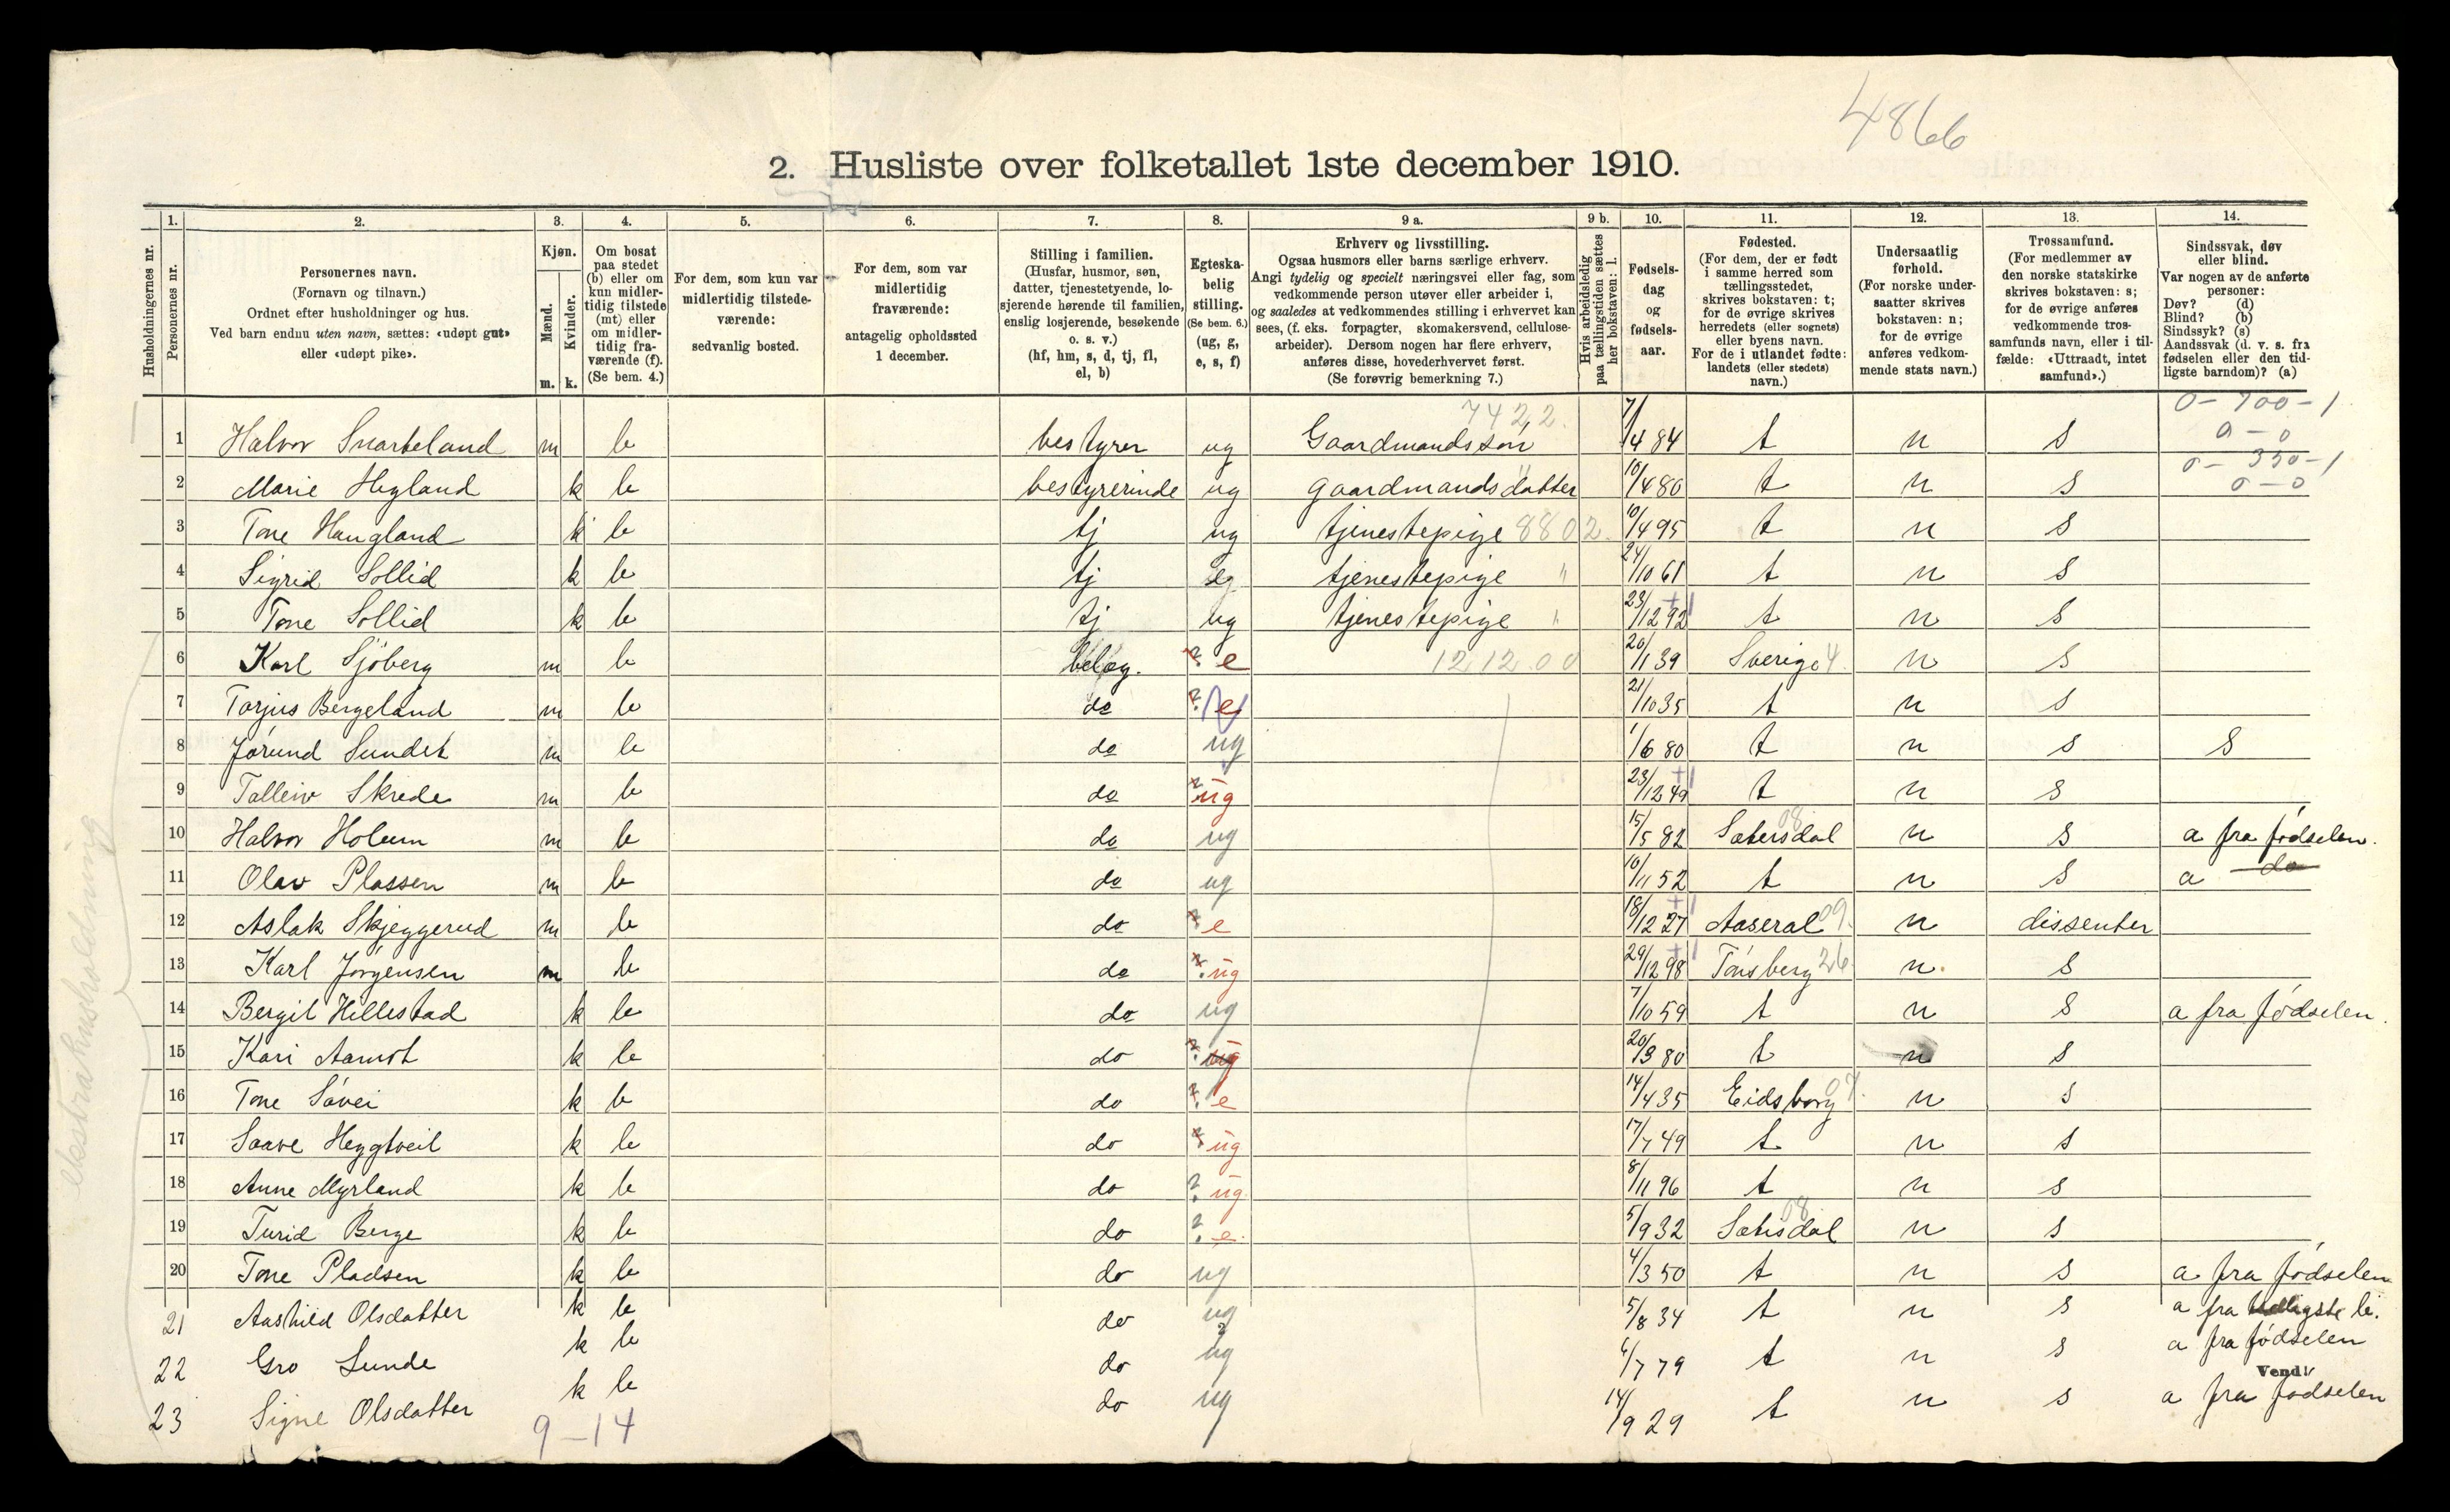 4866
2. Husliste over folketallet 1ste december 1910.
Husholdningernes nr.
1. Personernes nr.
2. Personernes navn. (Fornavn og tilnavn.) Ordnet efter husholdninger og hus. Ved barn endnu uten navn, sættes: «udøpt gut» eller «udøpt pike».
3. Kjøn. Mænd. m. Kvinder. k.
4. Om bosat paa stedet (b) eller om kun midlertidig tilstede (mt) eller om midlertidig fraværende (f). (Se bem. 4.)
5. For dem, som kun var midlertidig tilstedeværende: sedvanlig bosted.
6. For dem, som var midlertidig fraværende: antagelig opholdssted 1 december.
7. Stilling i familien. (Husfar, husmor, søn, datter, tjenestetyende, losjerende hørende til familien, enslig losjerende, besøkende o. s. v.) (hf, hm, s, d, tj, fl, el, b)
8. Egteskabelig stilling. (Se bem. 6.) (ug, g, e, s, f)
9 a. Erhverv og livsstilling. Ogsaa husmors eller barns særlige erhverv. Angi tydelig og specielt næringsvei eller fag, som vedkommende person utøver eller arbeider i, og saaledes at vedkommendes stilling i erhvervet kan sees, (f. eks. forpagter, skomakersvend, cellulosearbeider). Dersom nogen har flere erhverv, anføres disse, hovederhvervet først. (Se forøvrig bemerkning 7.)
9 b. Hvis arbeidsledig paa tællingstiden sættes her bokstaven: l.
10. Fødselsdag og fødselsaar.
11. Fødested. (For dem, der er født i samme herred som tællingsstedet, skrives bokstaven: t; for de øvrige skrives herredets (eller sognets) eller byens navn. For de i utlandet fødte: landets (eller stedets) navn.)
12. Undersaatlig forhold. (For norske undersaatter skrives bokstaven: n; for de øvrige anføres vedkommende stats navn.)
13. Trossamfund. (For medlemmer av den norske statskirke skrives bokstaven: s; for de øvrige anføres vedkommende trossamfunds navn, eller i tilfælde: «Uttraadt, intet samfund».)
14. Sindssvak, døv eller blind. Var nogen av de anførte personer: Døv? (d) Blind? (b) Sindssyk? (s) Aandssvak (d. v. s. fra fødselen eller den tidligste barndom)? (a)
7422. 0-700-1
1 Halvor Svarteland m b bestyrer ug Gaardmandssøn 7/4 84 t n s 0-0
0-350-1
2 Marie Hegland k b bestyrerinde ug gaardmandsdatter 10/4 80 t n s 0-0
3 Tone Haugland k b tj ug tjenestepige 8802. 10/4 95 t n s
4 Sigrid Sollid k b tj eg tjenestepige " 24/10 61 t n s
5 Tone Sollid k b tj ug tjenestepige " 23/12 92 +1 t n s
6 Karl Sjöberg m b belæg. ? e 12 12.00 20/1 39 Sverige 4. n s
7 Torjus Bergeland m b do ? e 21/10 35 t n s
8 Jørund Sundet m b do ug 1/6 80 t n s S
9 Talleiv Skrede m b do ? ug 23/12 49 +1 t n s
10 Halvor Holum m b do ug 15/5 82 Sætersdal 08 n s a fra fødselen.
11 Olav Plassen m b do ug 10/11 52 t n s a do
12 Aslak Skjeggerud m b do ? e 18/12 27 +1 Aaseral 09. n dissenter
13 Karl Jørgensen m b do ? ug 29/12 98 +1 Tønsberg 26. n. s
14 Bergit Hillestad k b do ug 7/10 59 t n s a fra fødselen.
15 Kari Aamot k b do ? ug 20/3 80 t n s
16 Tone Søvei k b do ? e 14/4 35 Eidsborg 07. n s
17 Saave Heggtveit k b do ? ug 17/7 49 t n s
18 Anne Myrland k b do ? ug 8/11 96 t n s
19 Turid Berge k b do ? e. 5/9 32 Sætisdal 08 n s
20 Tone Pladsen k b do ug 4/3 50 t n s a fra fødselen
21 Aashild Olsdatter k b do ug 5/8 34 t n s a fra tidligste b.
22 Gro Lunde k b do ? ug 6/7 79 t n s a fra fødselen
Vend!
23 Signe Olsdatter k b do ug 14/9 29 t n s a fra fødselen
9 - 14
ekstrahusholdning